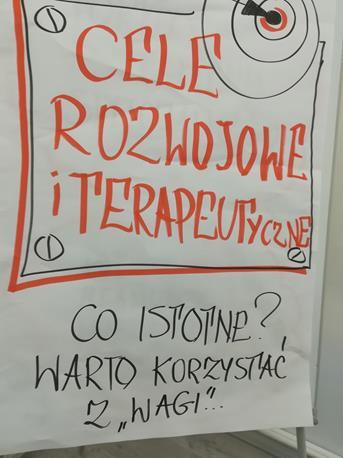 CELE
ROZWOJOWE
i TERAPEUTYCZNE
CO ISTOTNE?
WARTO KORZYSTAĆ
Z „WAGI"...